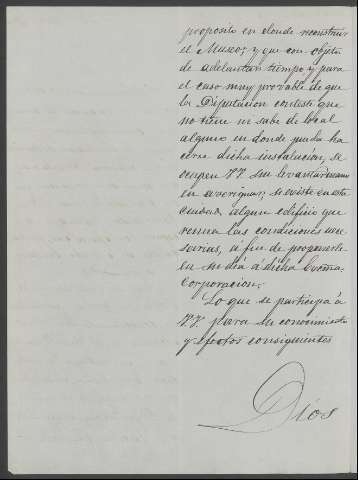 proposito en donde reconstruir
el Museo; y que con objeto
de adelantar tiempo y para
el caso muy provable de que
la Diputacion conteste que
no tiene ni sabe de local
alguno en donde pueda ha
cerse dicha instalación, se
ocupen VV. sin levantar mano
en averiguar, si existe en esta
Ciudad, algun edificio que
reuna las condiciones nece
sarias, á fin de proponerle
en su dia á dicha Excma
Corporación.
Lo que se participa á
VV. para su conocimiento
y efectos consiguientes
Dios